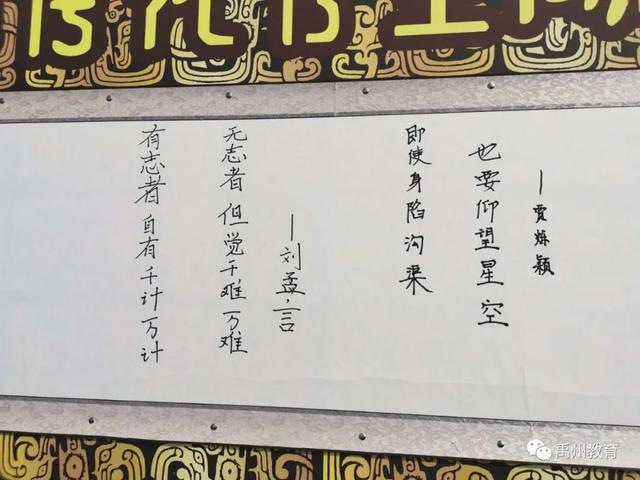 有志者 自有千计万计
无志者 但觉千难万难
—刘孟言
即使身陷沟渠
也要仰望星空
禹州教育